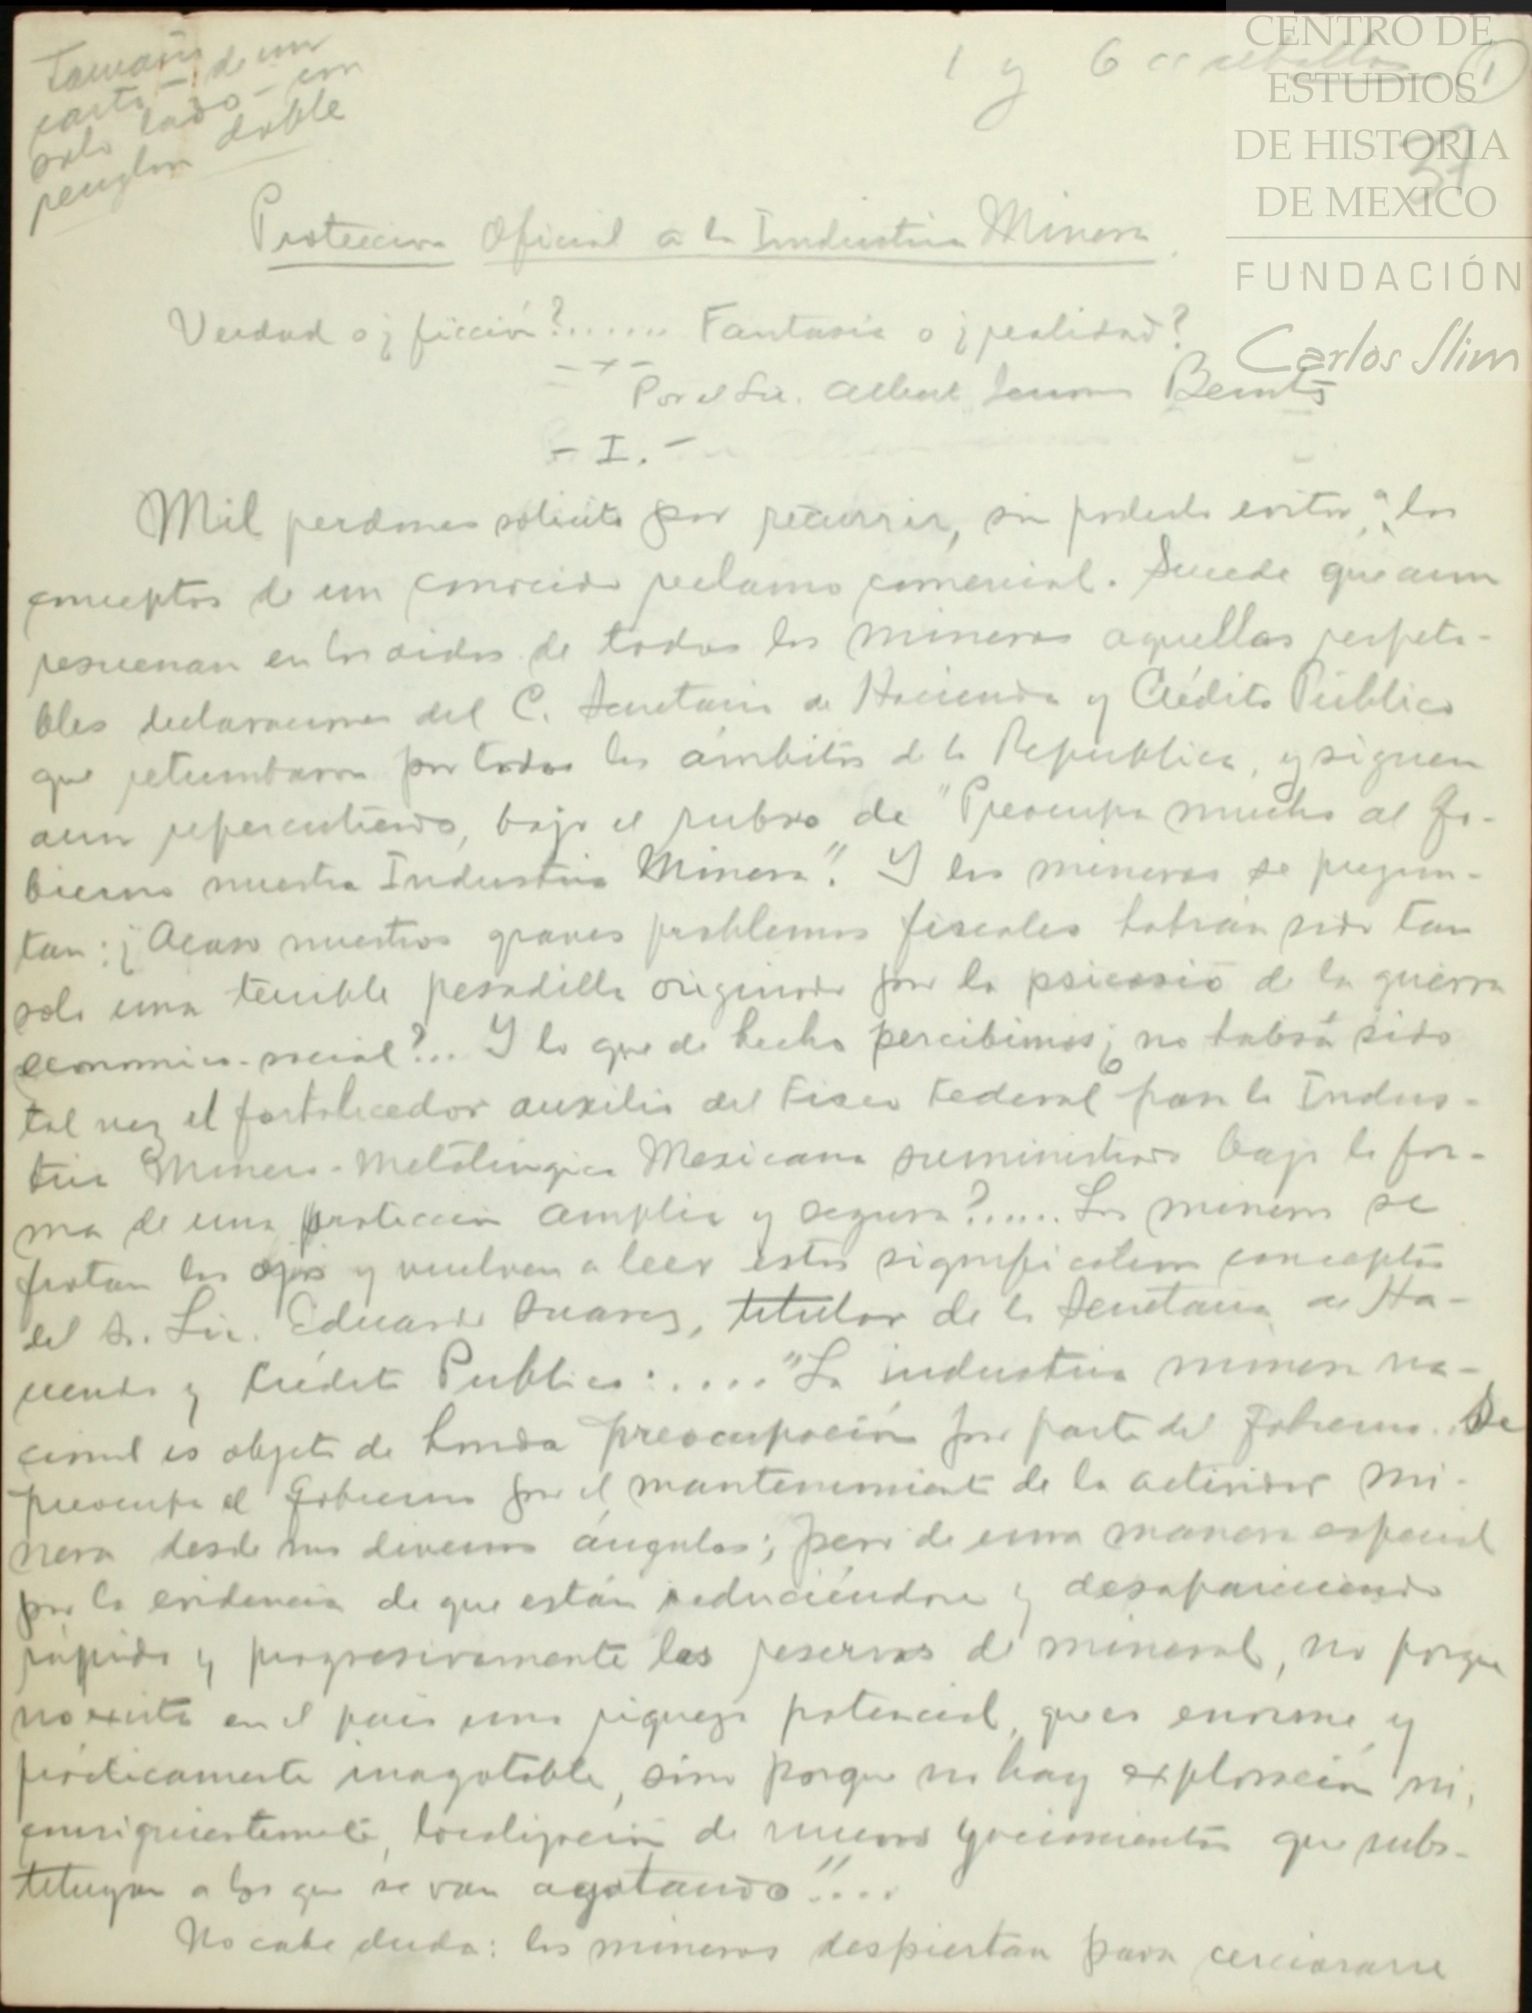 Tamaño
carta - de un
solo lado - en
renglon doble
1 y 6 (1)
CENTRO DE
ESTUDIOS
DE HISTORIA
DE MEXICO
FUNDACIÓN
Carlos Slim
Proteccion Oficial a la Industria Minera
Verdad o ¿ficción?...... Fantasia o ¿realidad?
Por el Lic. Benítez
- I. -
Mil perdones solicito por recurrir, sin poderlo evitar, a los
conceptos de un conocido reclamo comercial. Sucede que aun
resuenan en los oidos de todos los mineros aquellas respeta-
bles declaraciones del C. Secretario de Hacienda y Crédito Público
que retumbaron por todos los ámbitos de la República, y siguen
aun repercutiendo, bajo el rubro de "Preocupa mucho al Go-
bierno nuestra Industria Minera". Y los mineros se pregun-
tan: ¿Acaso nuestros graves problemas fiscales habrán sido tan
solo una terrible pesadilla originada por la psicosis de la guerra
economico-social?... Y lo que de hecho percibimos ¿no habrá sido
tal vez el fortalecedor auxilio del Fisco Federal para la Indus-
tria Minero-Metalúrgica Mexicana suministrado bajo la for-
ma de una protección amplia y segura?..... Los mineros se
frotan los ojos y vuelven a leer estos significativos conceptos
del Sr. Lic. Eduardo Suarez, titular de la Secretaria de Ha-
cienda y Crédito Publico:.... "La industria minera na-
cional es objeto de honda preocupación por parte del Gobierno. Se
preocupa el Gobierno por el mantenimiento de la actividad mi-
nera desde sus diversos ángulos; pero de una manera especial
por la evidencia de que están reduciéndose y desapareciendo
rápida y progresivamente las reservas de mineral, no porque
no exista en el pais una riqueza potencial, que es enorme y
prácticamente inagotable, sino porque no hay exploración ni,
consiguientemente, localización de nuevos yacimientos que subs-
tituyan a los que se van agotando"....
No cabe duda: los mineros despiertan para cerciorarse